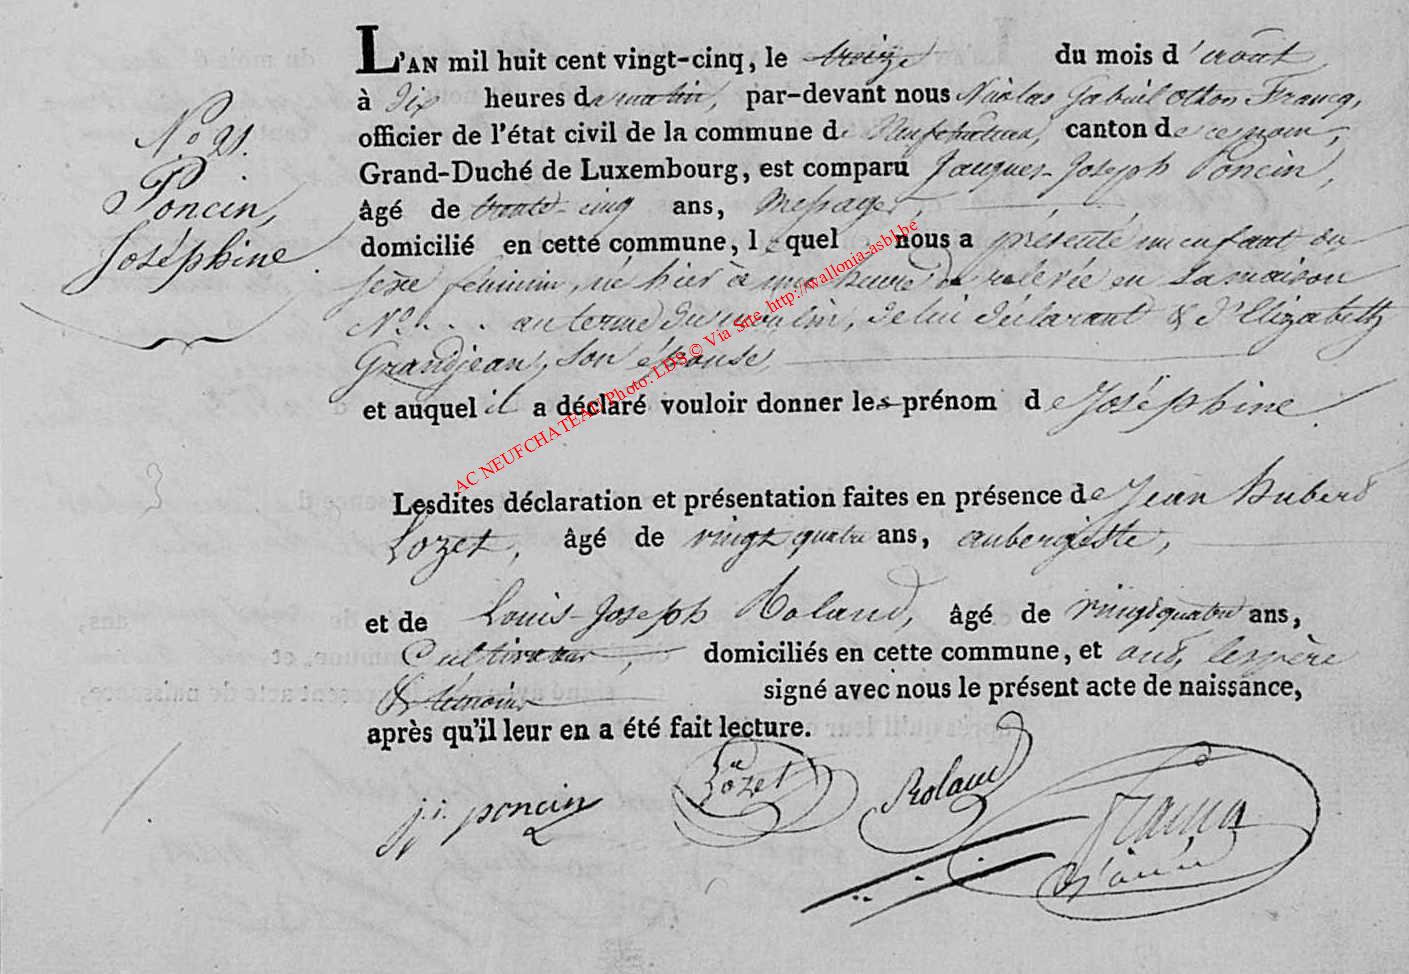 L'AN mil huit cent vingt-cinq, le treize du mois d'août
à dix heures du matin, par-devant nous Nicolas Gabriel Othon Francq,
officier de l'état civil de la commune de Neufchâteau, canton de ce nom,
Grand-Duché de Luxembourg, est comparu Jacques-Joseph Poncin,
âgé de trente-cinq ans, Messager,
domicilié en cette commune, lequel nous a présenté un enfant du
sexe féminin, né hier à une heure de relevée en sa maison
No. . . . au terme du moulin, de lui déclarant & d'Elizabeth
Grandjean, son épouse,
et auquel il a déclaré vouloir donner les prénom de Joséphine.
No 91.
Poncin,
Joséphine.
Lesdites déclaration et présentation faites en présence de Jean Hubert
Lozet, âgé de vingt quatre ans, aubergiste,
et de Louis-Joseph Roland, âgé de vingt quatre ans,
Cultivateur, domiciliés en cette commune, et ont, les père
& témoins signé avec nous le présent acte de naissance,
après qu'il leur en a été fait lecture.
j. j. poncin
Lozet
Roland
Francq
AC NEUFCHATEAU Photo: LDS © Via Site http://wallonia-asbl.be